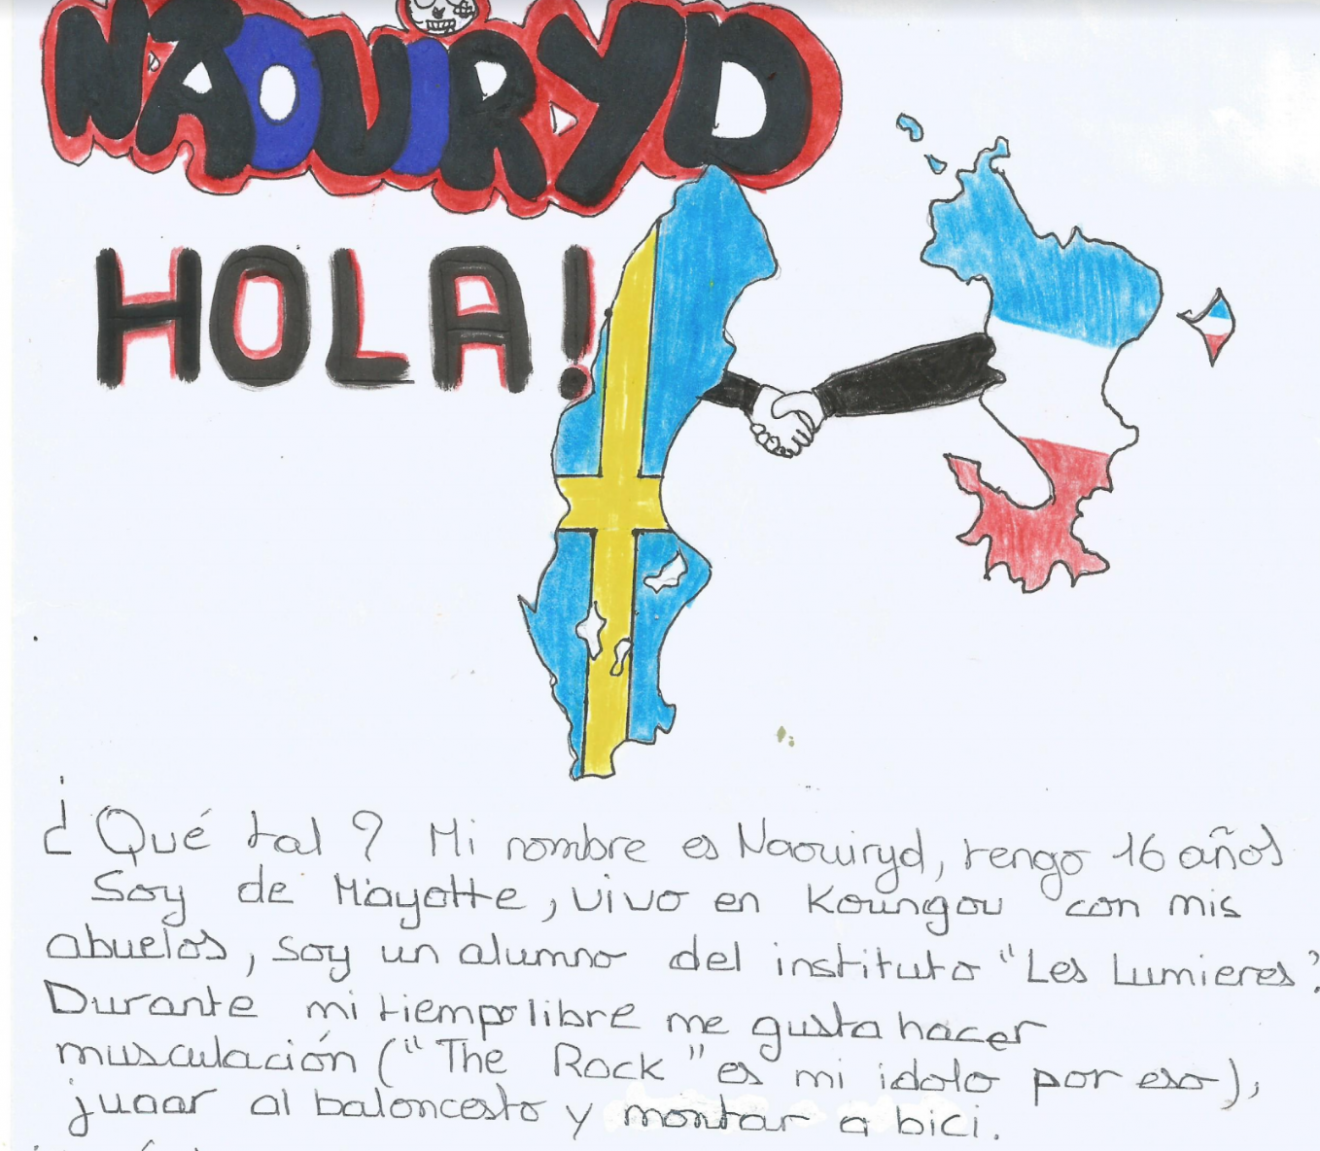 NAOUIRYD
HOLA!
¿Qué tal? Mi nombre es Naouiryd, tengo 16 años
Soy de Mayotte, vivo en Koungou con mis
abuelos, soy un alumno del instituto "Les Lumieres".
Durante mi tiempo libre me gusta hacer
musculación ("The Rock" es mi idolo por eso),
jugar al baloncesto y montar a bici.